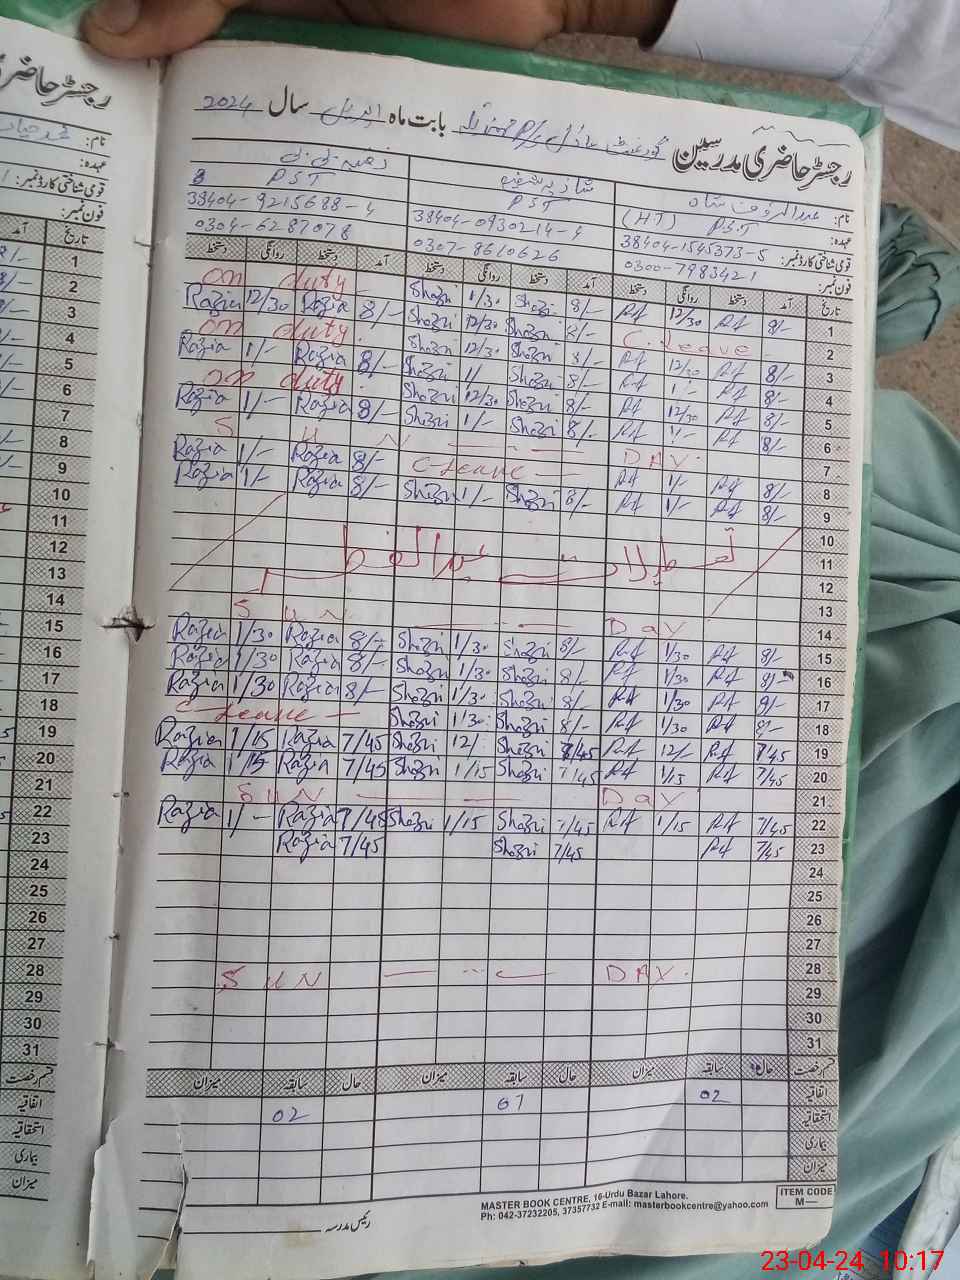 رجسٹر حاضری مدرسین گورنمنٹ بابت ماہ اپریل سال 2024
نام: عبدالرؤف شاہ شازیہ رضیہ بی بی
عہدہ: P.S.T (H.T) P.S.T P.S.T
قومی شناختی کارڈ نمبر: 38404-1545373-5 38404-0930214-4 38404-9215688-4
فون نمبر: 0300-7983421 0307-8610626 0304-6287078
تاریخ آمد دستخط روانگی دستخط آمد دستخط روانگی دستخط آمد دستخط روانگی دستخط
1 8/- 12/30 8/- Shazri 1/30 Shazri on duty
2 C.Leave 8/- Shazri 12/30 Shazri 8/- Razia 12/30 Razia
3 8/- 12/30 8/- Shazri 12/30 Shazri on duty
4 8/- 1/- 8/- Shazri 1/ Shazri 8/- Razia 1/- Razia
5 8/- 12/30 8/- Shazri 12/30 Shazri on duty
6 8/- 1/- 8/- Shazri 1/- Shazri 8/- Razia 1/- Razia
7 SUN DAY
8 8/- 1/- C-Leave 8/- Razia 1/- Razia
9 8/- 1/- 8/- Shazri 1/- Shazri 8/- Razia 1/- Razia
10
11 تعطیلات عیدالفطر
12
13
14 SUN Day
15 8/- 1/30 8/- Shazri 1/30 Shazri 8/- Razia 1/30 Razia
16 8/- 1/30 8/- Shazri 1/30 Shazri 8/- Razia 1/30 Razia
17 8/- 1/30 8/- Shazri 1/30 Shazri 8/- Razia 1/30 Razia
18 8/- 1/30 8/- Shazri 1/30 Shazri C-Leave
19 7/45 12/- 7/45 Shazri 12/- Shazri 7/45 Razia 1/15 Razia
20 7/45 1/15 7/45 Shazri 1/15 Shazri 7/45 Razia 1/15 Razia
21 SUN Day
22 7/45 1/15 7/45 Shazri 1/15 Shazri 7/45 Razia 1/- Razia
23 7/45 7/45 Shazri 7/45 Razia
24
25
26
27
28 SUN DAY
29
30
31
قسم رخصت حال سابقہ میزان حال سابقہ میزان حال سابقہ میزان
اتفاقیہ 02 01 02
استحقاقیہ
بیماری
میزان
رئیس مدرسہ
MASTER BOOK CENTRE, 16-Urdu Bazar Lahore.
Ph: 042-37232205, 37357732 E-mail: masterbookcentre@yahoo.com
ITEM CODE
M—
رجسٹر حاضری
نام:
عہدہ:
قومی شناختی کارڈ نمبر:
فون نمبر:
تاریخ آمد
1
2
3
4
5
6
7
8
9
10
11
12
13
14
15
16
17
18
19
20
21
22
23
24
25
26
27
28
29
30
31
قسم رخصت
اتفاقیہ
استحقاقیہ
بیماری
میزان
23-04-24 10:17